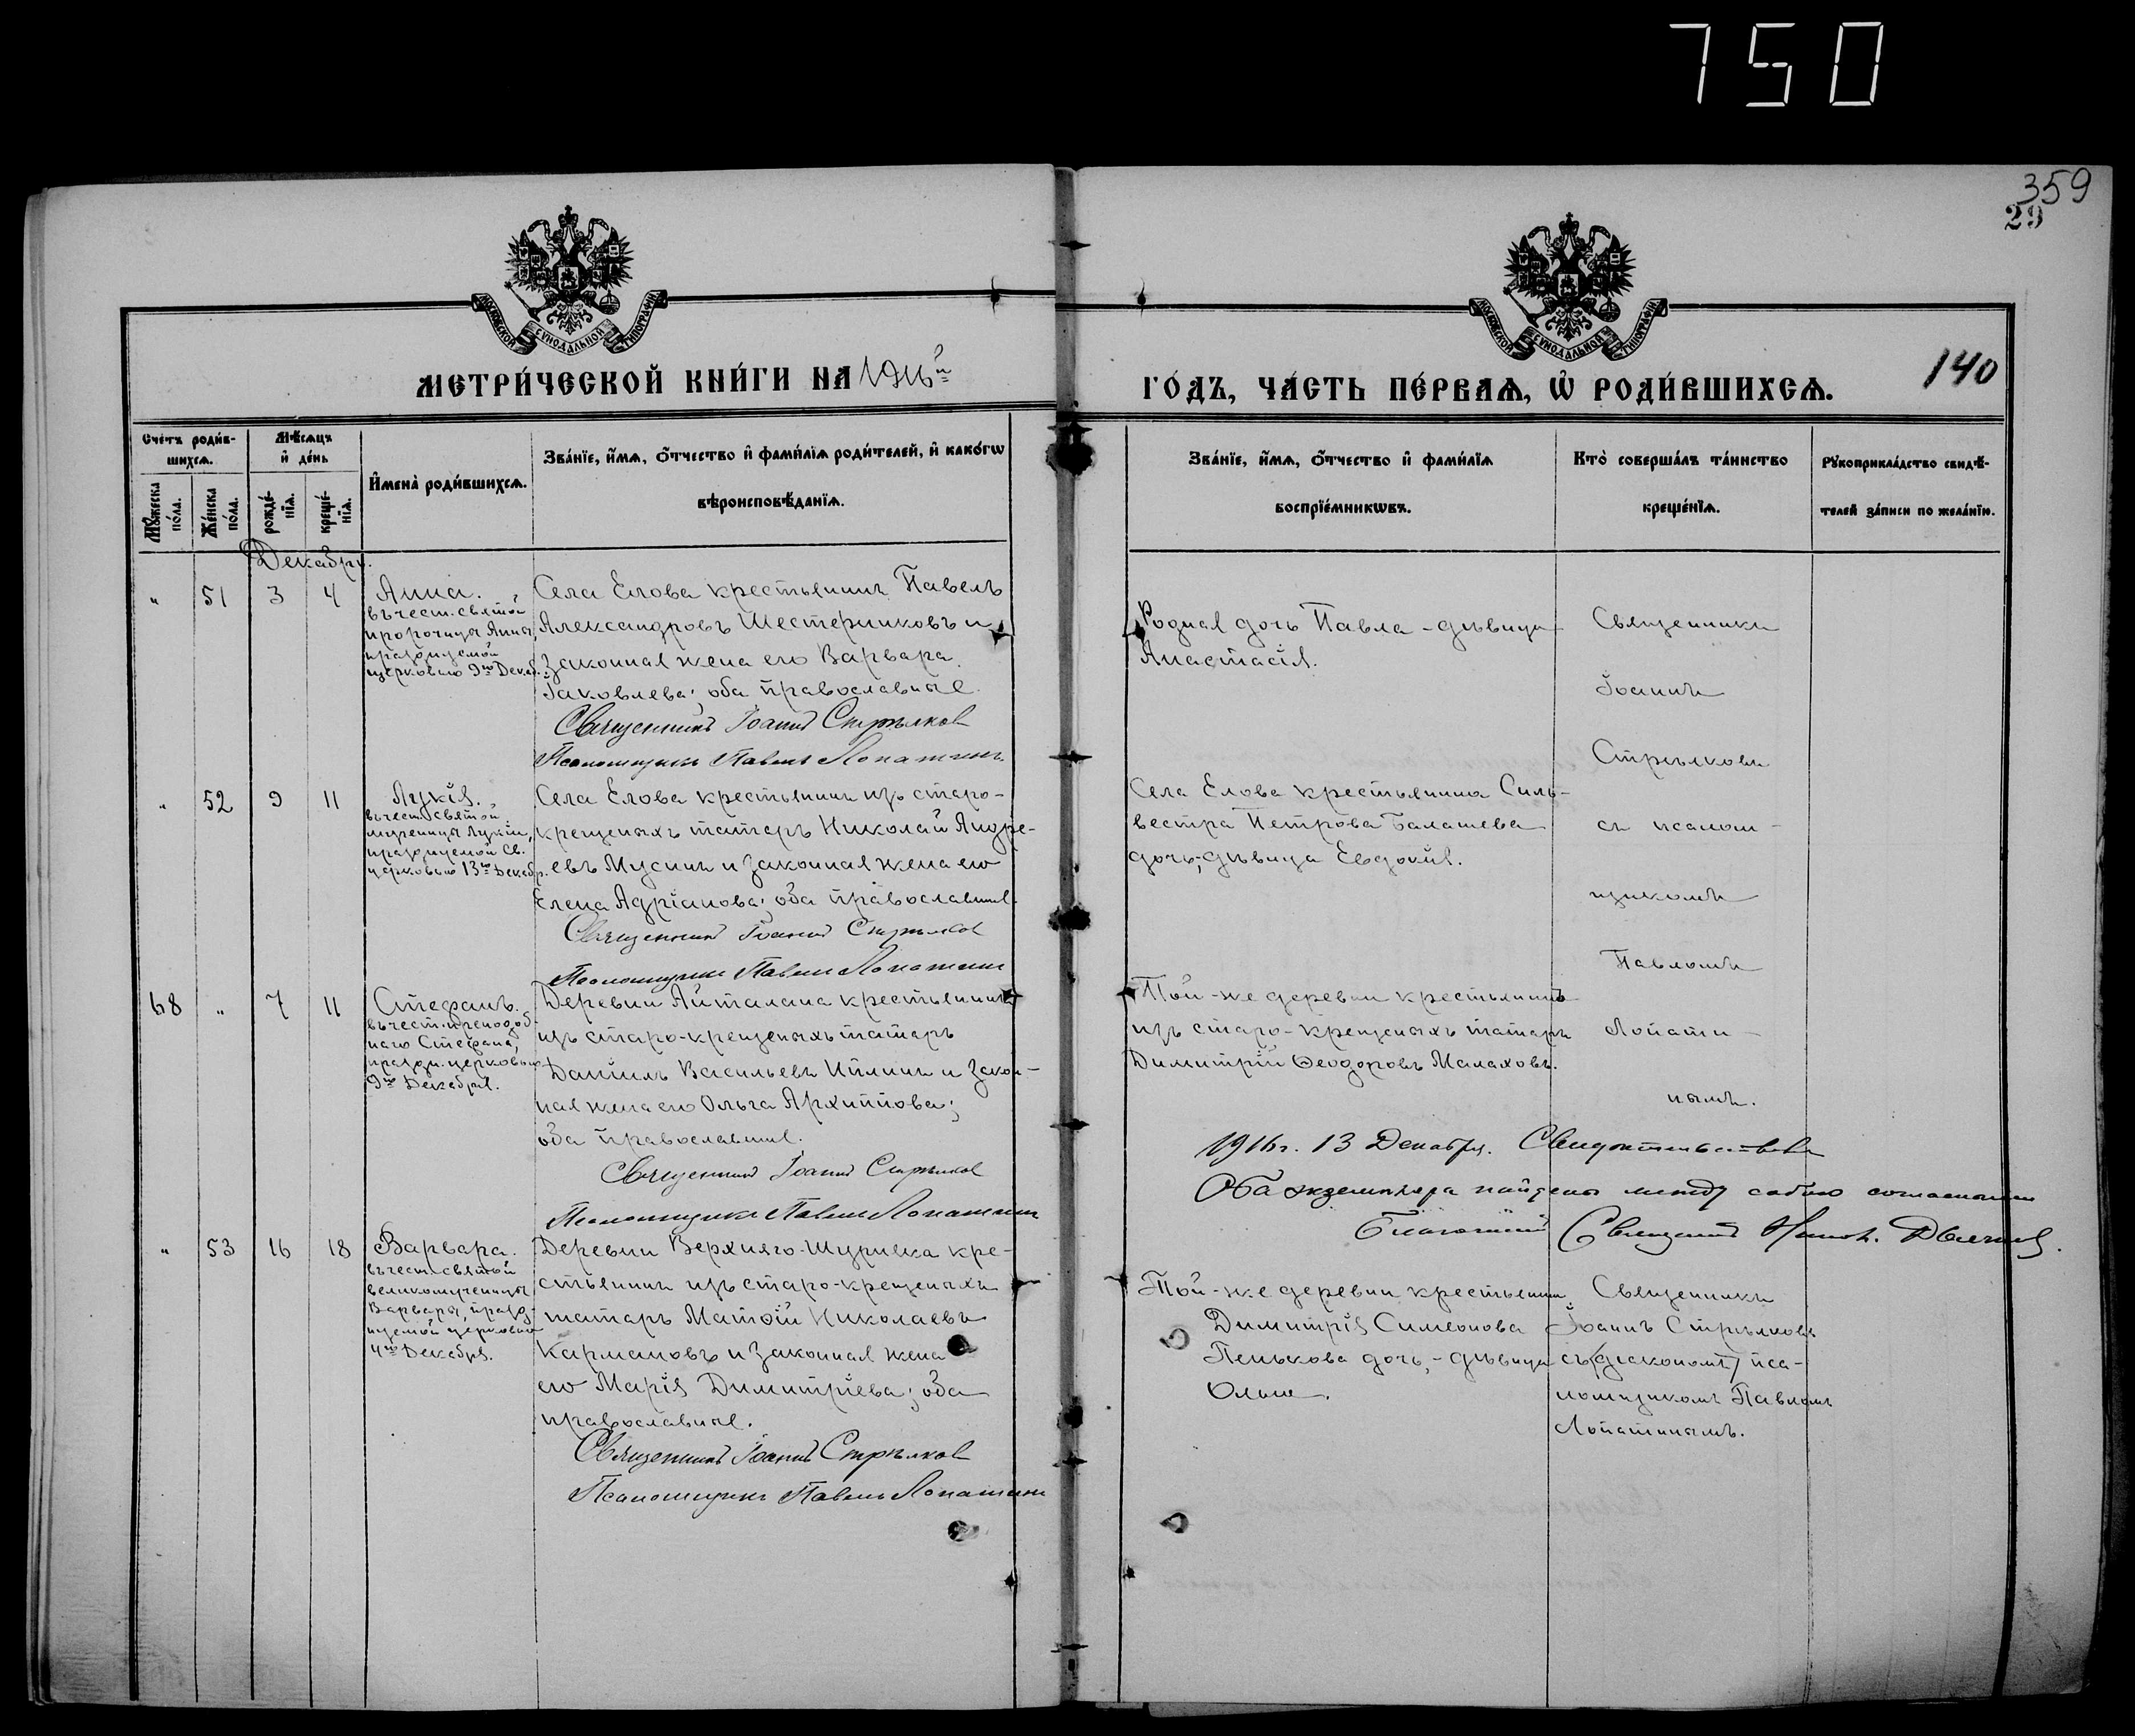 750
359
29
МОСКОВСКОЙ СѴНОДАЛЬНОЙ ТИПОГРАФІИ
МОСКОВСКОЙ СѴНОДАЛЬНОЙ ТИПОГРАФІИ
МЕТРИ́ЧЕСКОЙ КНИ́ГИ НА 1916й
ГО́ДЪ, ЧА́СТЬ ПЕ́РВАѦ, Ѡ҆ РОДИ́ВШИХСѦ.
140
Сче́тъ роди́в-
шихсѧ.
Мꙋ́жеска по́ла.
Же́нска по́ла.
Мѣ́сѧцъ
и҆ де́нь
рожде́-
нїѧ.
креще́-
нїѧ.
И҆мена̀ роди́вшихсѧ.
Зва́нїе, и҆́мѧ, ѻ҆́тчество и҆ фами́лїѧ роди́телей, и҆ како́гѡ
вѣроисповѣ́данїѧ.
Зва́нїе, и҆́мѧ, ѻ҆́тчество и҆ фами́лїѧ
воспрїе́мникѡвъ.
Кто̀ соверша́лъ та́инство
креще́нїѧ.
Рꙋкоприкла́дство свидѣ́-
телей за́писи по жела́нїю.
Декабрь.
" 51 3 4
Анна.
въ чест. святой
пророчицы Анны,
празднуемой
церковью 9го Декаб.
Села Елова крестьянинъ Павелъ
Александровъ Шестерниковъ и
законная жена его Варвара
Іаковлева; оба православные.
Священникъ Іоаннъ Стрѣлков
Псаломщикъ Павелъ Лопатинъ
Родная дочь Павла - дѣвица
Анастасія.
Священникъ
Іоаннъ
Стрѣлковъ
съ псалом-
щикомъ
Павломъ
Лопати-
нымъ.
" 52 9 11
Лукія.
въ чест. святой
мученицы Лукіи,
празднуемой св.
церковью 13го Декабр.
Села Елова крестьянинъ изъ старо-
крещеныхъ татаръ Николай Андре-
евъ Мусинъ и законная жена его
Елена Адріанова; оба православные.
Священникъ Іоаннъ Стрѣлков
Псаломщикъ Павелъ Лопатинъ
Села Елова крестьянина Силь-
вестра Петрова Балашева
дочь, дѣвица Евдокія.
68 " 7 11
Стефанъ.
въ чест. преподоб-
наго Стефана,
праздн. церковью
9го Декабря.
Деревни Айталана крестьянинъ
изъ старо-крещеныхъ татаръ
Даніилъ Васильевъ Ильинъ и закон-
ная жена его Ольга Архиппова;
оба православные.
Священникъ Іоаннъ Стрѣлков
Псаломщикъ Павелъ Лопатинъ
Той-же деревни крестьянинъ
изъ старо-крещеныхъ татаръ
Димитрій Ѳеодоровъ Малаховъ.
1916г. 13 Декабря. Свидѣтельствовалъ
Оба экземпляра найдены между собою согласными
Благочинный Священникъ
" 53 16 18
Варвара.
въ чест. святой
великомученицы
Варвары, празд-
нуемой церковью
4го Декабря.
Деревни Верхняго-Шурияка кре-
стьянинъ изъ старо-крещеныхъ
татаръ Матѳій Николаевъ
Кармановъ и законная жена
его Марія Димитріева; оба
православные.
Священникъ Іоаннъ Стрѣлков
Псаломщикъ Павелъ Лопатинъ
Той-же деревни крестьянина
Димитрія Симеонова
Пенькова дочь, - дѣвица
Ольга.
Священникъ
Іоаннъ Стрѣлковъ
съ (діакономъ) пса-
ломщикомъ Павломъ
Лопатинымъ.